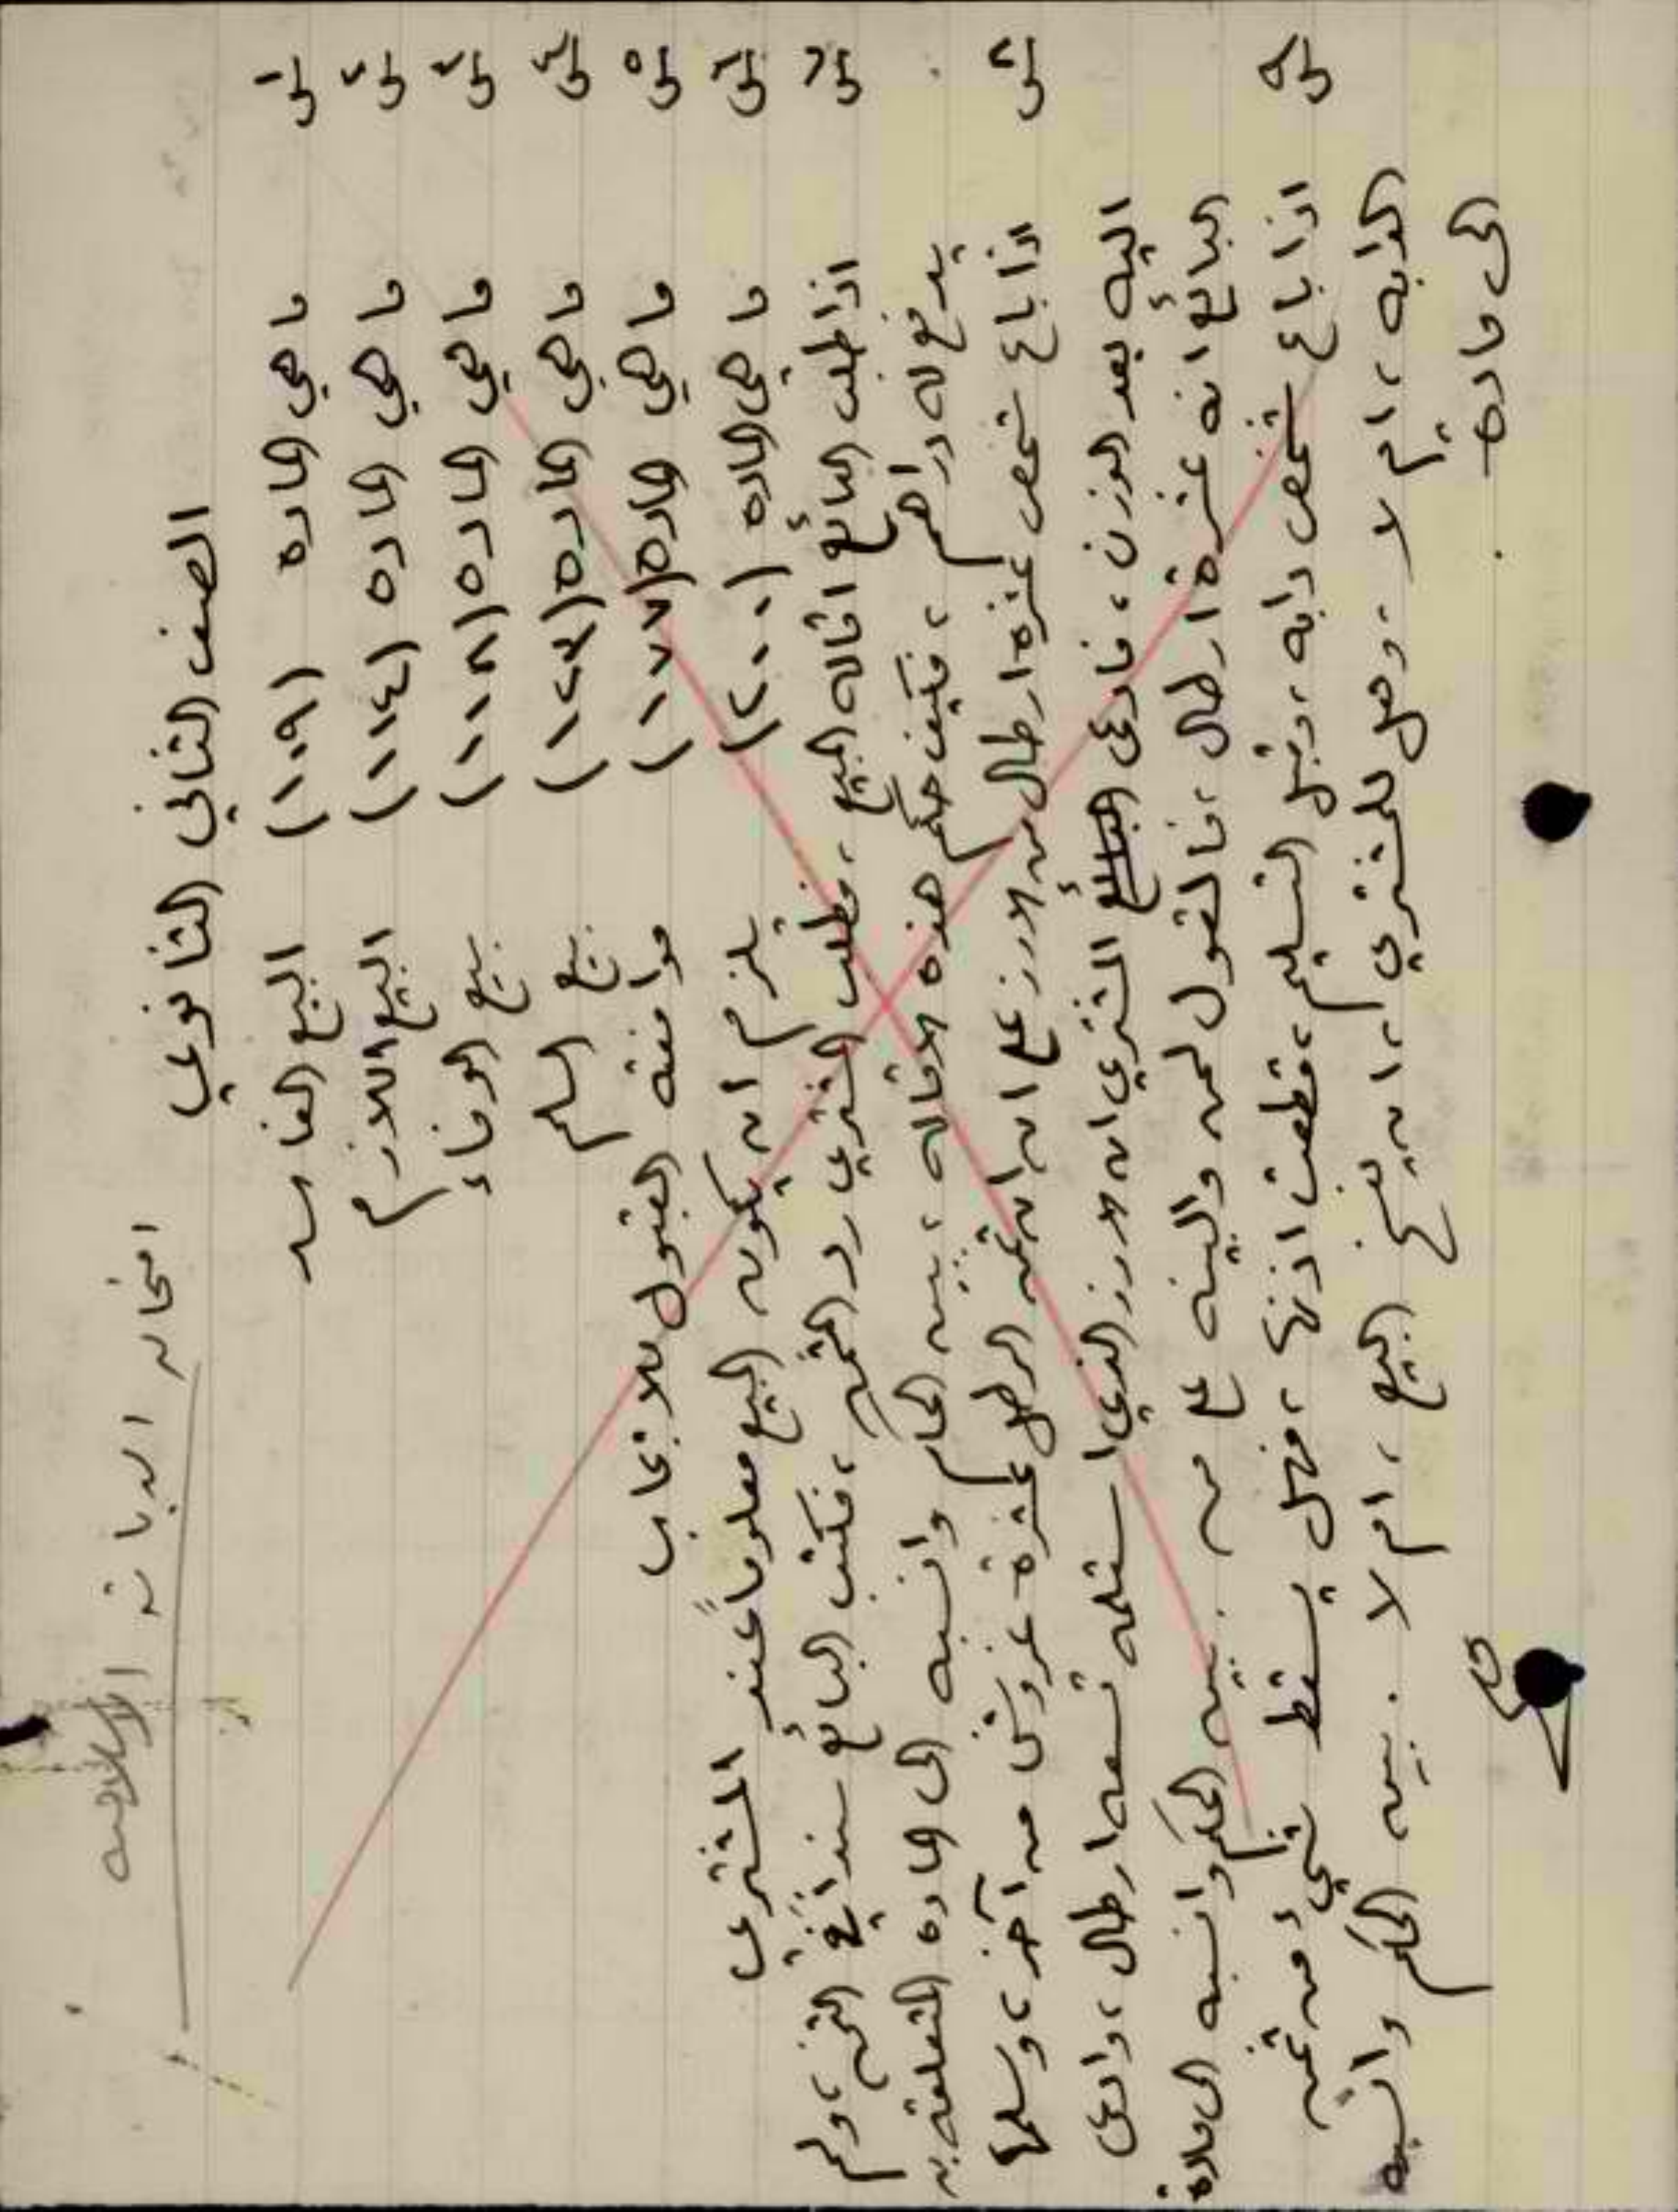 امتحان الديانة الاسلامية
الصف الثاني الثانوي
س١ ما هي المادة (١٠٩) البيع الفاسد
س٢ ما هي المادة (١١٤) البيع اللازم
س٣ ما هي المادة (١١٨) بيع الوفاء
س٤ ما هي المادة (١٢٣) بيع السلم
س٥ ما هي المادة (١٧٧) موافقة القبول للايجاب
س٦ ما هي المادة (٢٠٠) يلزم ان يكون المبيع معلوماً عند المشتري
س٧ اذا طلب البائع اقالة البيع، فطلب المشتري رد الثمن، فكتب البائع سنداً في الثمن، ولم
يدفع له دراهم، فكيف حكم هذه الاقاله، بين الحكم وانسبه الى المادة المتعلقة به
س٨ اذا باع شخص عشرة ارطال من الارز على ان ثمن الرطل عشرة غروش من آخر، وسلمها
اليه بعد الوزن، فادعى المشتري ان الارز الذي استلمه تسعة ارطال، وادعى
البائع انه عشرة ارطال، فالقول لمن والبينه على من. بين الحكم وانسبه الى مادة
س٩ اذا باع شخص دابه، وقبل التسليم، قطعت اذنها، فهل يسقط شيء من ثمن
الدابه، ام لا. وهل للمشتري، ان يفسخ البيع، ام لا. بين الحكم وانسبه
الى مادة.